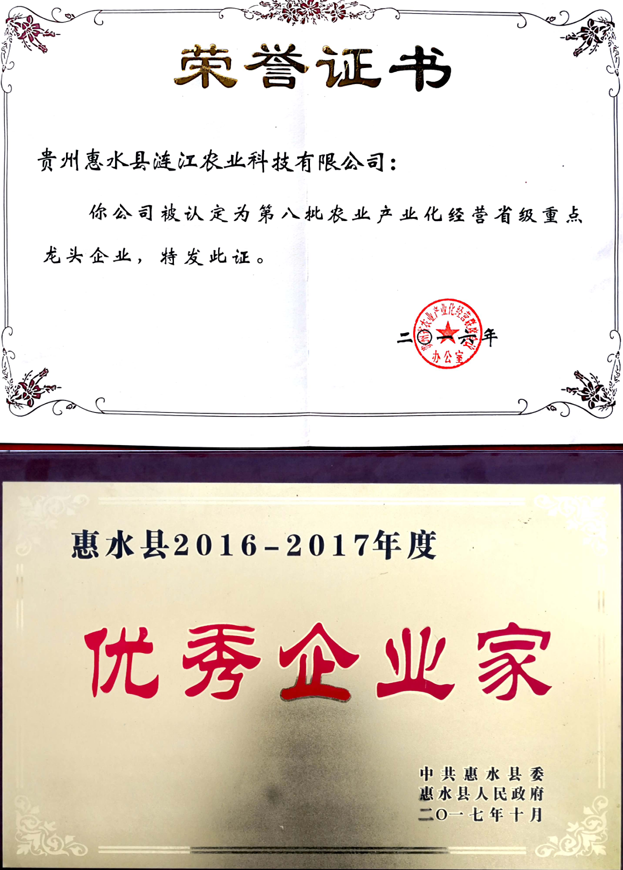 荣誉证书
贵州惠水县涟江农业科技有限公司：
你公司被认定为第八批农业产业化经营省级重点
龙头企业，特发此证。
二〇一六年
办公室
惠水县2016-2017年度
优秀企业家
中共惠水县委
惠水县人民政府
二〇一七年十月